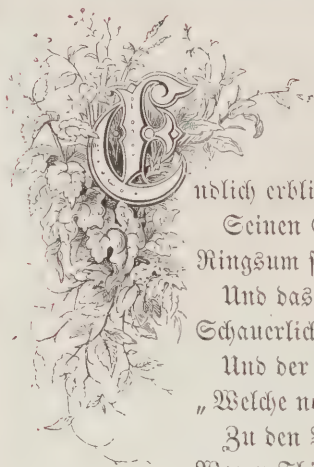 Endlich erbli
Seinen
Ringsum
Und das
Schauerlich
Und der
„Welche
Zu den